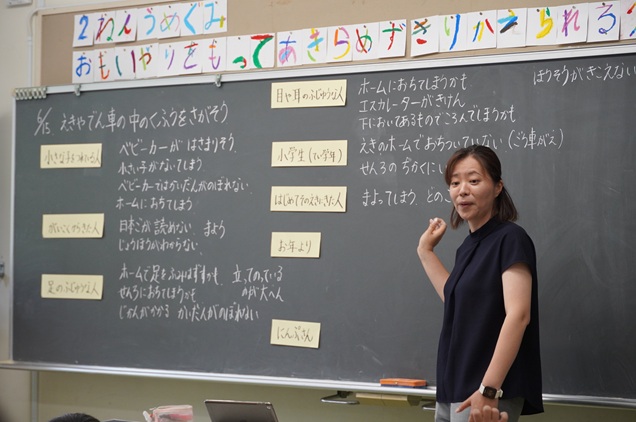 2ねんうめぐみ
おもいやりをもってあきらめずきりかえられる
6/15 えきやでん車の中のくふうをさがそう
小さな子をつれている人
ベビーカーが はさまりそう。
小さい子がないてしまう
ベビーカーではかいだんがのぼれない。
ホームにおちてしまう
がいこくからきた人
日本ごが読めない。まよう
じょうほうがわからない。
足のふじゆうな人
ホームで足をふみはずすかも。立っている
のが大へん
せんろにおちてしまうかも
じかんがかかる かいだんがのぼれない
目や耳のふじゆうな人
ホームにおちてしまうかも
ほうそうがきこえない
エスカレーターがきけん
下においてあるものでころんでしまうかも
小学生(てい学年)
えきのホームでおちついていない
せんろの ちかくに
はじめてそのえきにきた人
まよってしまう。どこ
お年より
にんぷさん